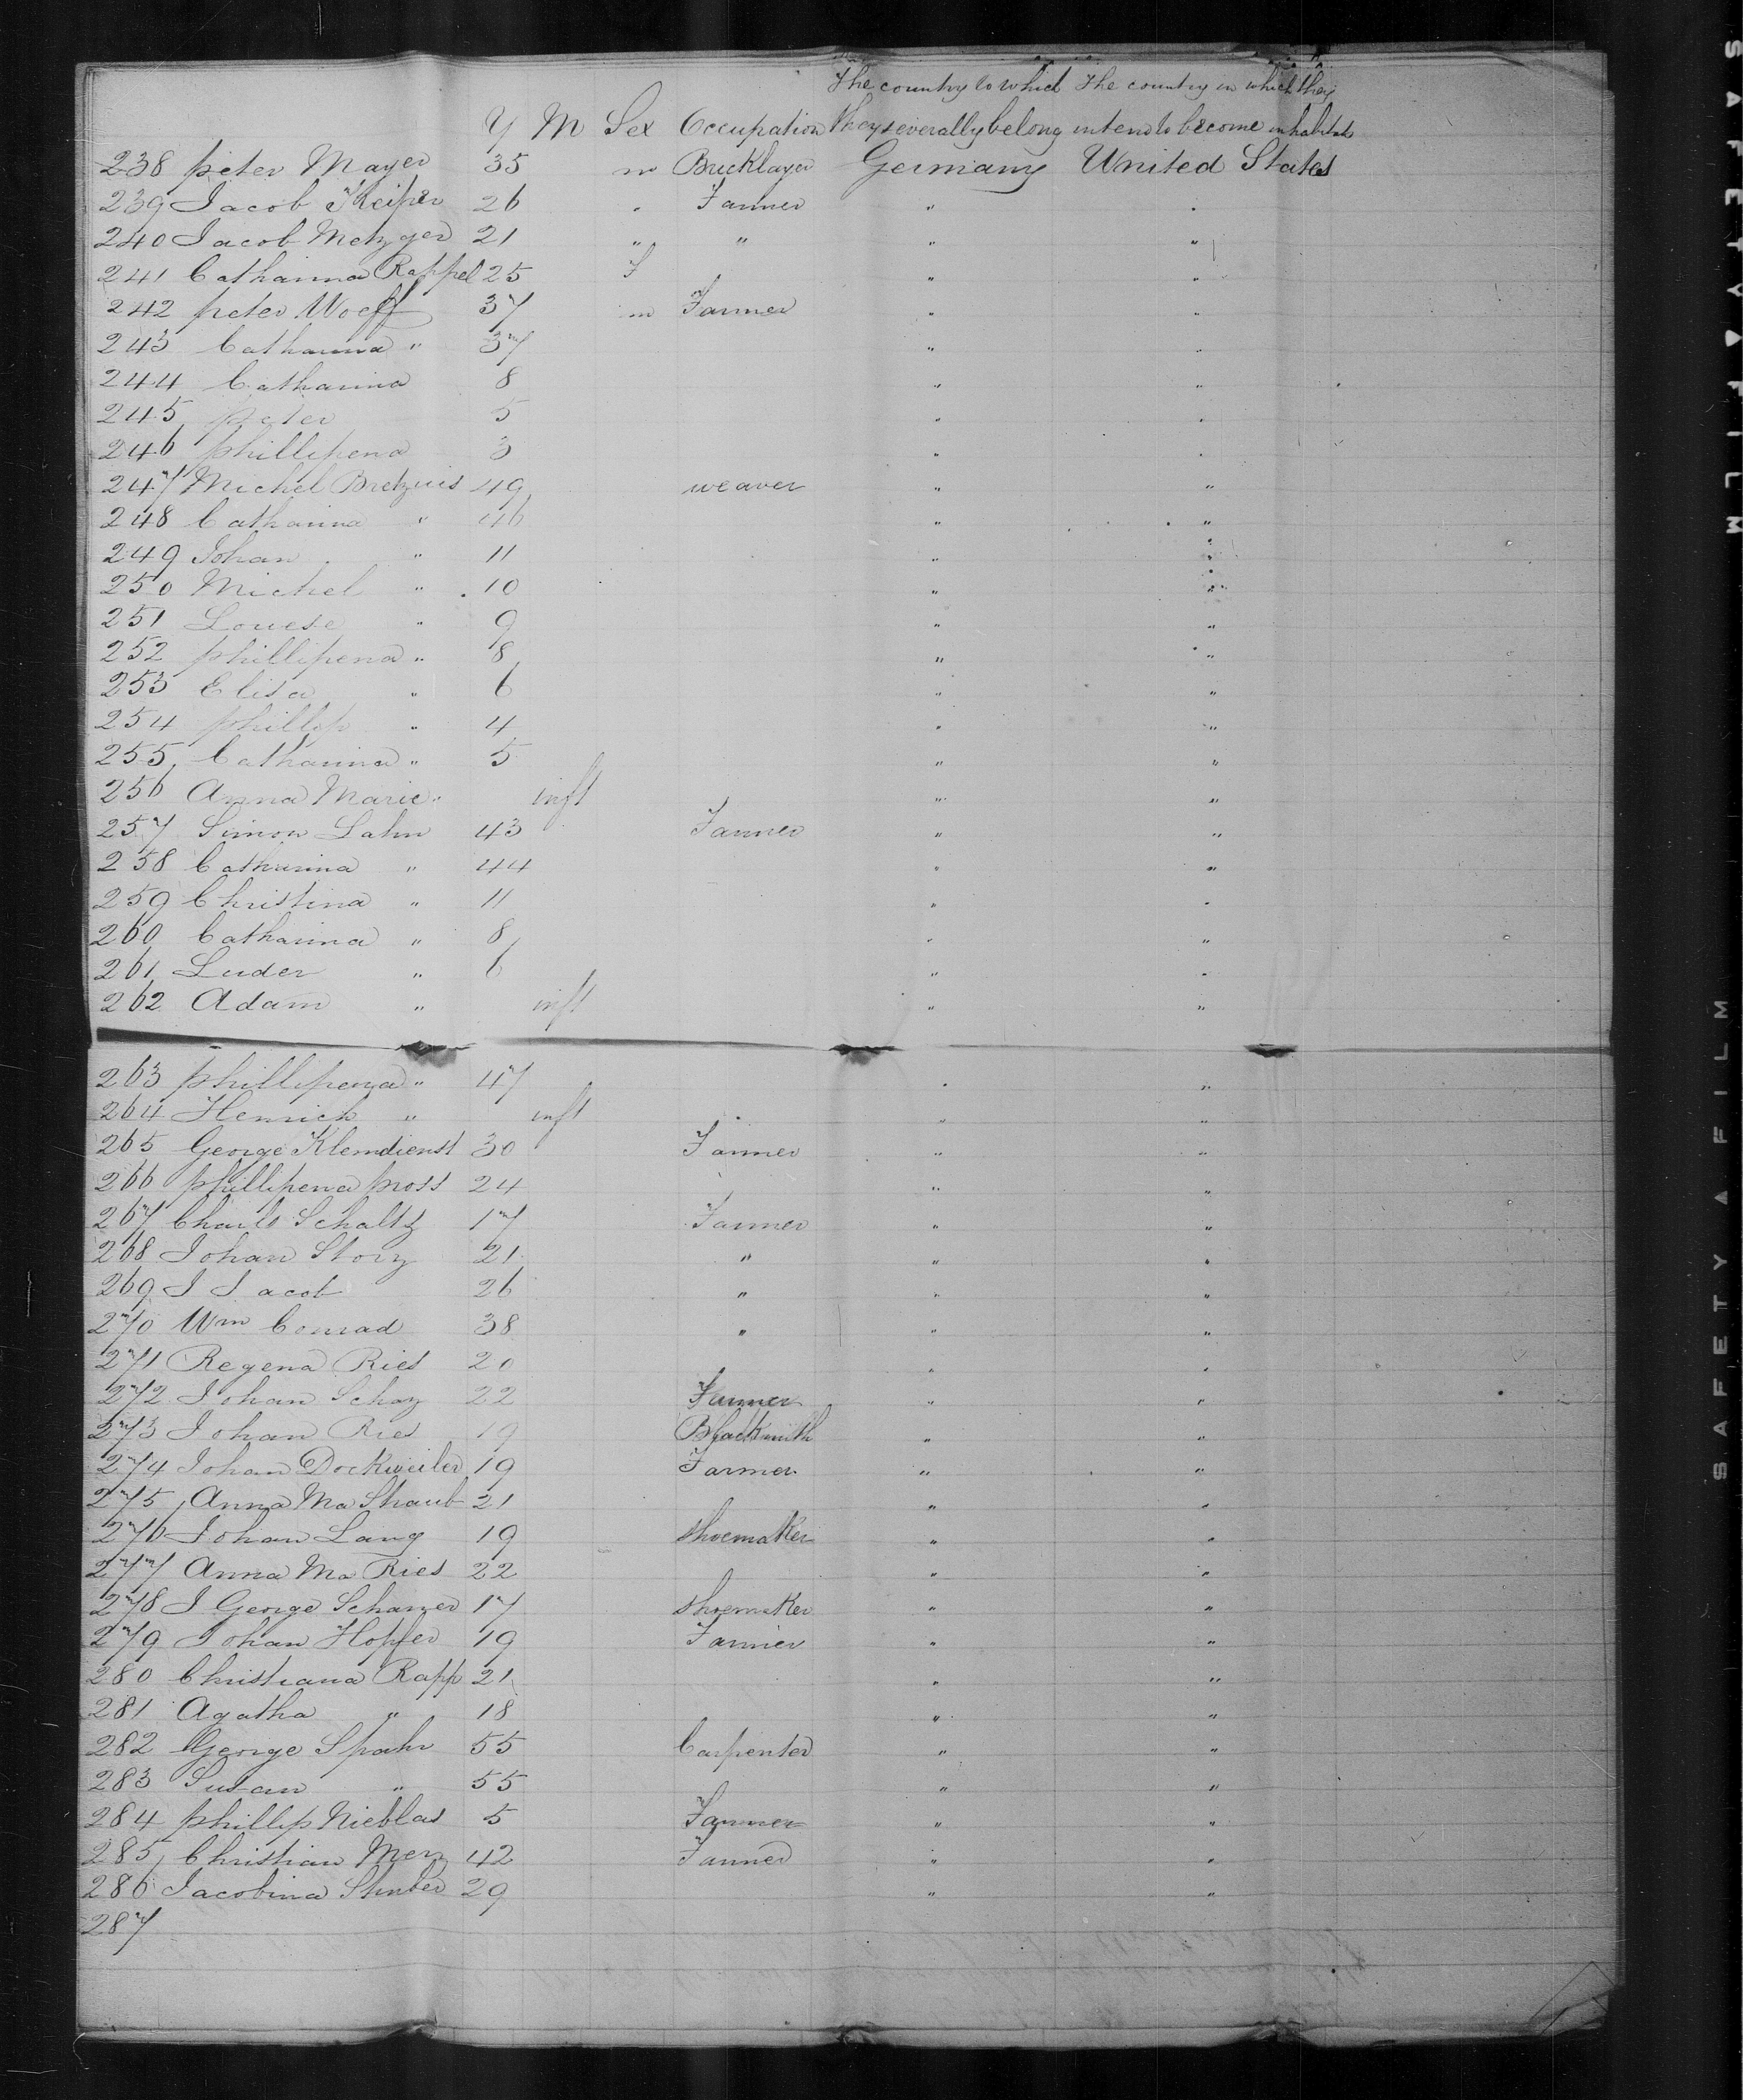 The country to which The country in which they
Y M Sex Occupation they severally belong intend to become inhabitants
238 Peter Mayer 35 m Bricklayer Germany United States
239 Jacob Keiper 26 " Farmer " "
240 Jacob Metzger 21 " " " "
241 Catharina Rappel 25 F " "
242 Peter Woeff 37 m Farmer " "
243 Catharina " 37 " "
244 Catharina 8 " "
245 Peter 5 " "
246 Phillipena 3 " "
247 Michel Bretzuis 49 weaver " "
248 Catharina " 46 " "
249 Johan " 11 " "
250 Michel " 10 " "
251 Louese " 9 " "
252 Phillipena " 8 " "
253 Elisa " 6 " "
254 Phillip " 4 " "
255 Catharina " 5 " "
256 Anna Marie " inft " "
257 Simon Lahn 43 Farmer " "
258 Catharina " 44 " "
259 Christina " 11 " "
260 Catharina " 8 " "
261 Luder " 6 " "
262 Adam " inft " "
263 Phillipena " 47 " "
264 Henrich " inft " "
265 George Klemdienst 30 Farmer " "
266 Phillipena Pross 24 " "
267 Charls Schaltz 17 Farmer " "
268 Johan Storz 21 " " "
269 J Jacob 26 " " "
270 Wm Conrad 38 " " "
271 Regena Ries 20 " "
272 Johan Schaz 22 Farmer " "
273 Johan Ries 19 Blacksmith " "
274 Johan Dockweiler 19 Farmer " "
275 Anna Ma Shaub 21 " "
276 Johan Lang 19 Shoemaker " "
277 Anna Ma Ries 22 " "
278 J George Schaner 17 Shoemaker " "
279 Johan Hopfer 19 Farmer " "
280 Christiana Rapp 21 " "
281 Agatha " 18 " "
282 George Spahr 55 Carpenter " "
283 Susan " 55 " "
284 Phillip Nieblas 5 Farmer " "
285 Christian Merz 42 Farmer " "
286 Jacobina Stuber 29 " "
287
SAFETY FILM
SAFETY FILM